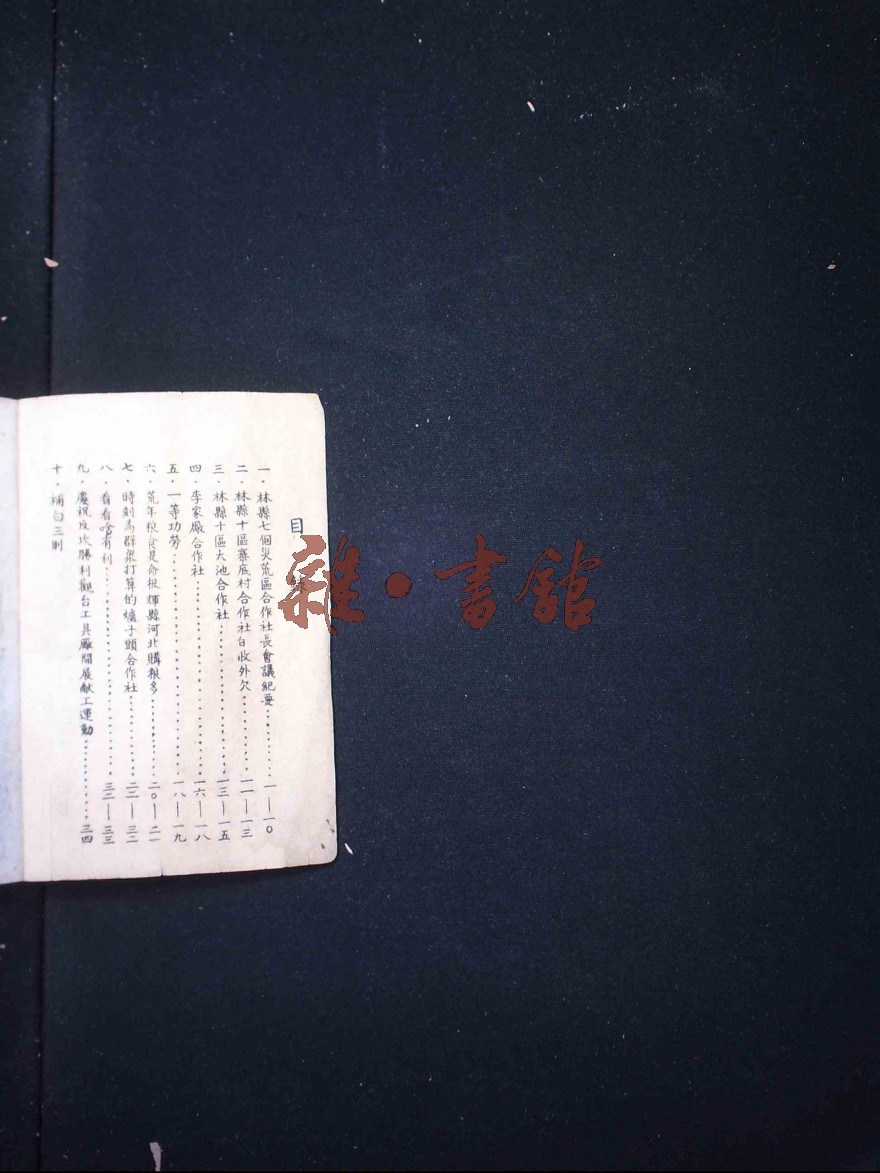 目
一·林縣七個災荒區合作社長會議紀要⋯⋯⋯一—一〇
二·林縣十區寨底村合作社白收外欠⋯⋯⋯一一—一三
三·林縣十區大池合作社⋯⋯⋯一三—一五
四·李家廠合作社⋯⋯⋯一六—一八
五·一等功勞⋯⋯⋯一八—一九
六·荒年粮食是命根輝縣河北購粮多⋯⋯⋯二〇—二一
七·時刻為群衆打算的爐子頭合作社⋯⋯⋯二二—三二
八·看看啥有利⋯⋯⋯三二—三三
九·慶祝反攻勝利觀台工具廠開展献工運動⋯⋯⋯三四
十·補白三則
雜·書館